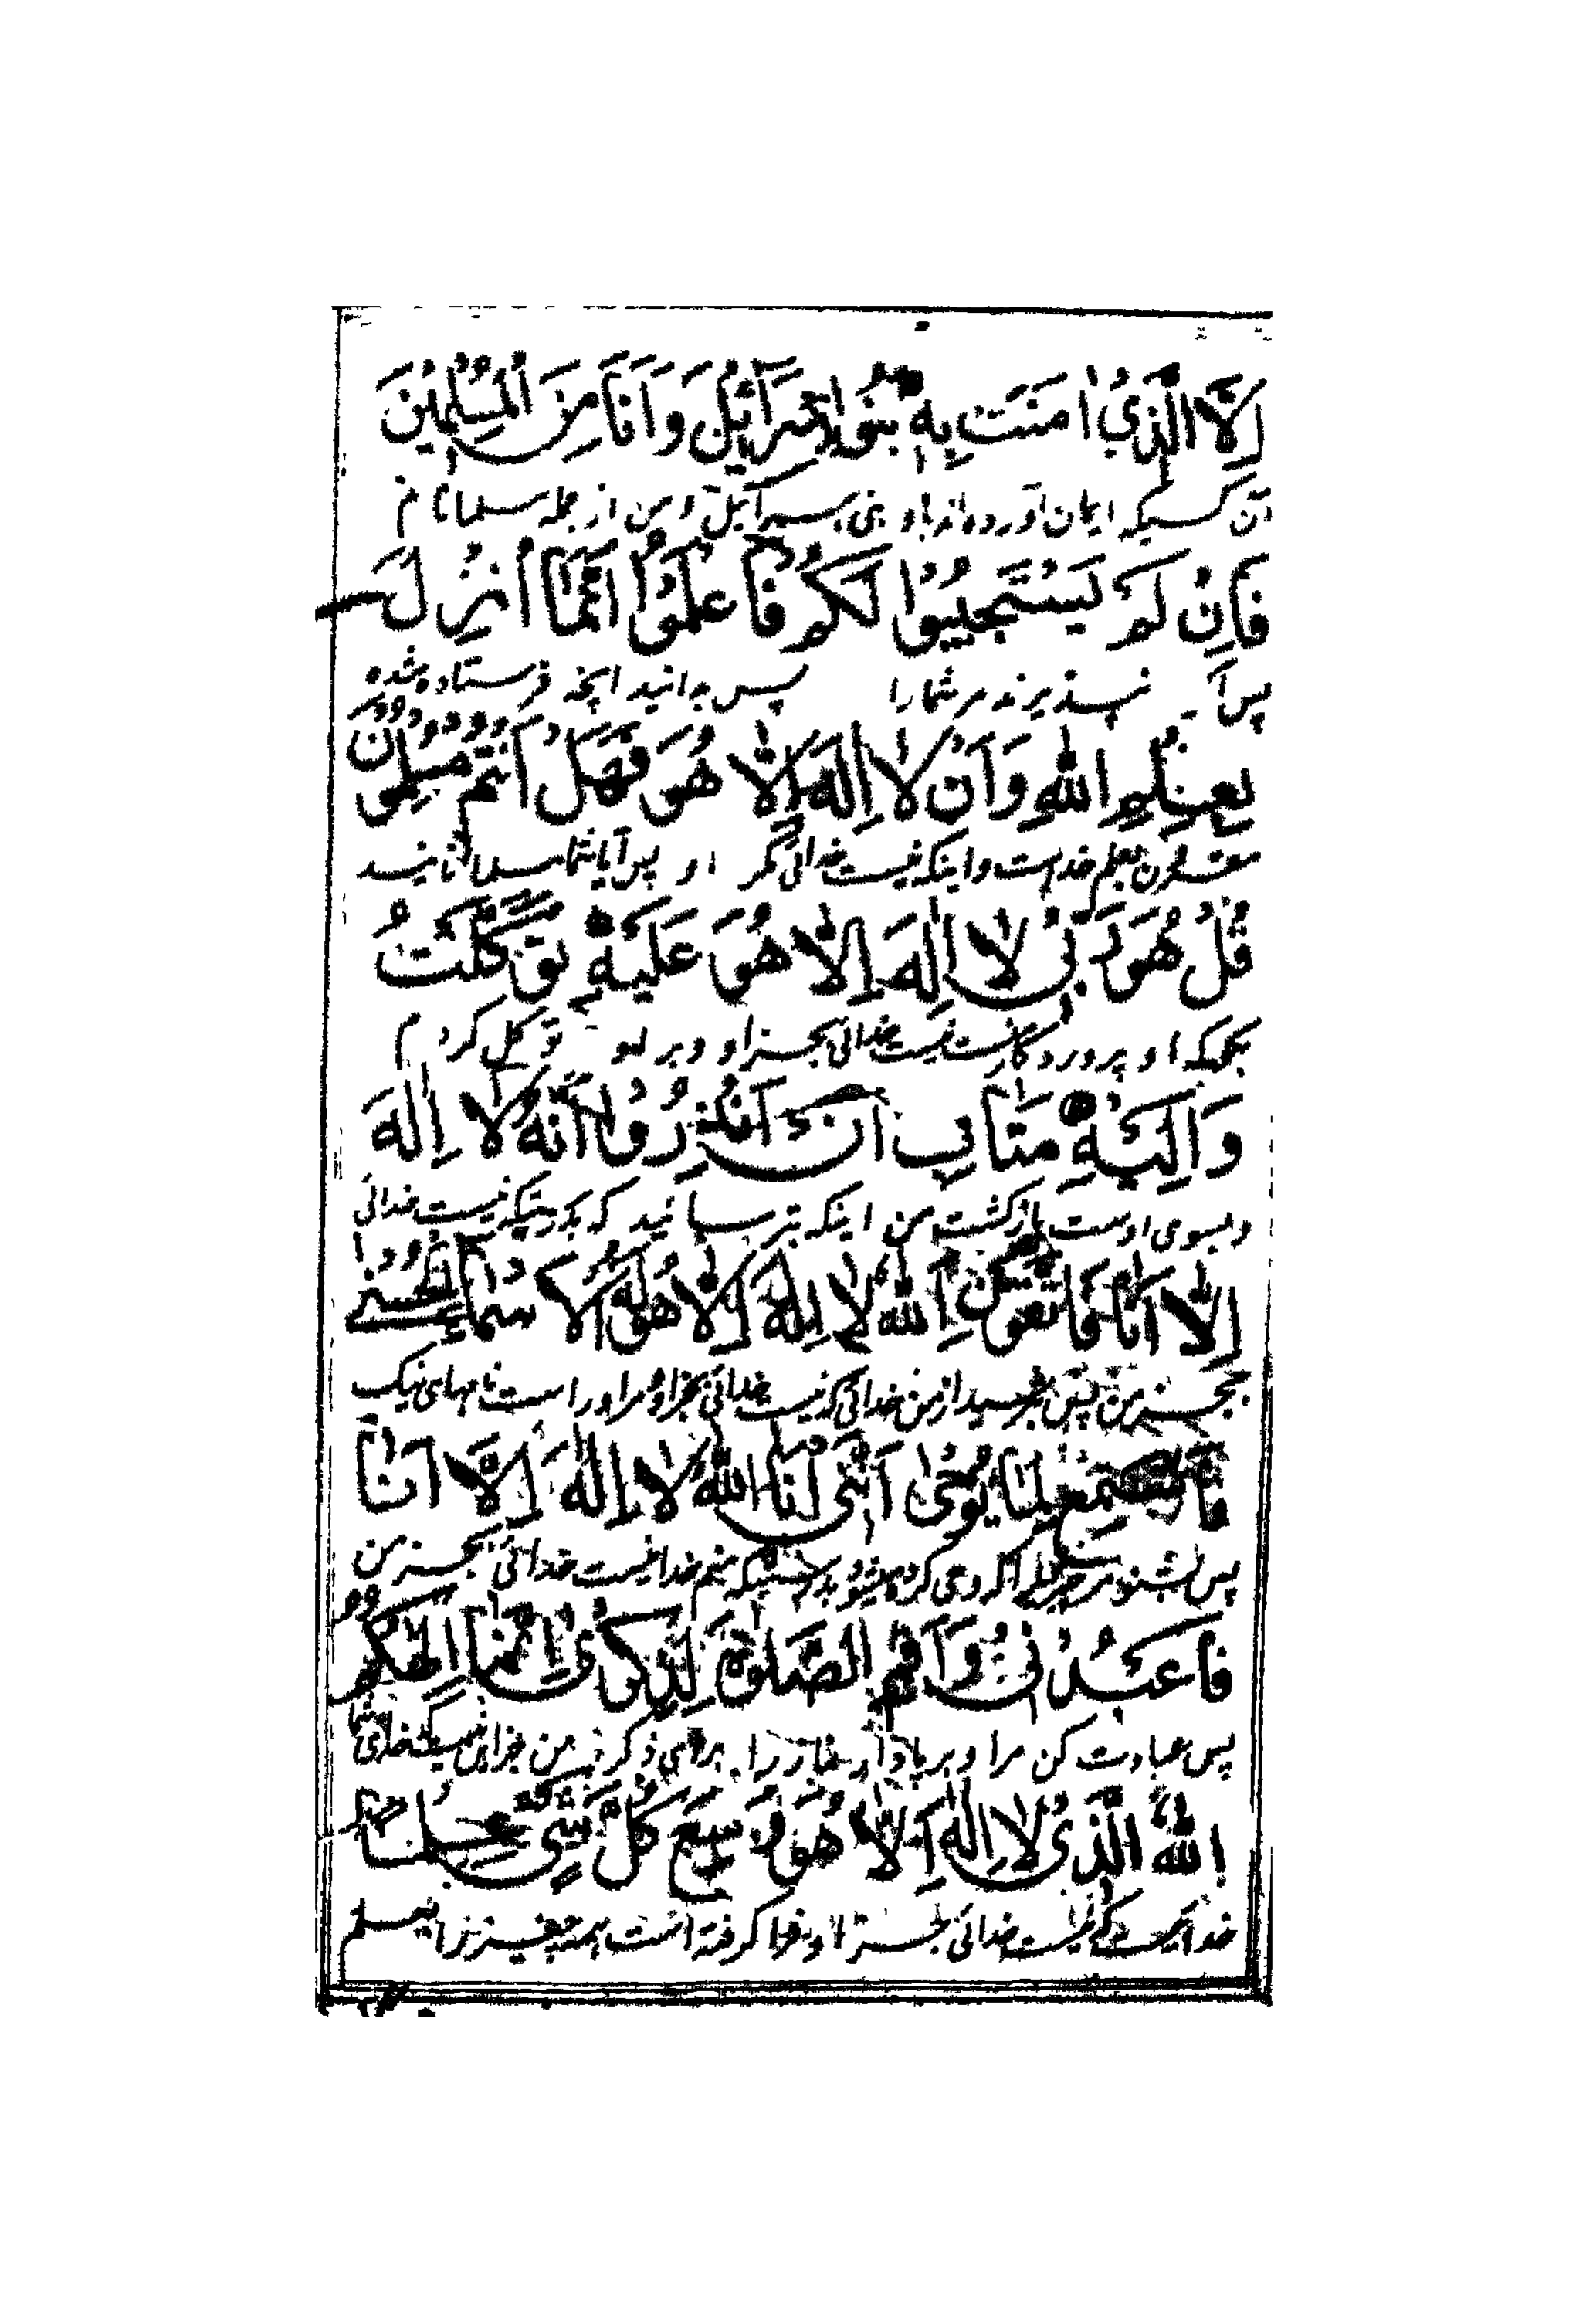 اِلَّا الَّذِيْ اٰمَنَتْ بِهٖ بَنُوْا اِسْرَآئِيْلَ وَاَنَا مِنَ الْمُسْلِمِيْنَ
آن کسیکه ایمان آورده اند باو بنی اسرآئیل و من از جمله مسلمانانم
فَاِنْ لَمْ يَسْتَجِيْبُوْا لَكُمْ فَاعْلَمُوْا اَنَّمَا اُنْزِلَ
پس اگر نپذیرند مر شمارا پس بدانید انچه فرستاده شده
بِعِلْمِ اللّٰهِ وَاَنْ لَا اِلٰهَ اِلَّا هُوَ فَهَلْ اَنْتُمْ مُسْلِمُوْنَ
بعلم خداست و اینکه نیست خدائی مگر او پس آیا شما مسلمانانید
قُلْ هُوَ رَبِّىْ لَا اِلٰهَ اِلَّا هُوَ عَلَيْهِ تَوَكَّلْتُ
بگو که او پروردگار منست نیست خدائی بجز او و بر او توکل کردم
وَاِلَيْهِ مَتَابِ اَنْ اَنْذِرُوْا اَنَّهُ لَا اِلٰهَ
و بسوی اوست بازگشت من اینکه بترسانید که بدرستیکه نیست خدائی
اِلَّا اَنَا فَاتَّقُوْنِ اَللّٰهُ لَا اِلٰهَ اِلَّا هُوَ لَهُ الْاَسْمَاءُ الْحُسْنٰى
بجز من پس بترسید از من خدائی که نیست خدائی بجز او مر او راست نامهای نیک
فَاسْتَمِعْ لِمَا يُوْحٰى اِنَّنِىْ اَنَا اللّٰهُ لَا اِلٰهَ اِلَّا اَنَا
پس بشنو مر وحی کرده میشود بدرستیکه منم خدا نیست خدائی بجز من
فَاعْبُدْنِىْ وَاَقِمِ الصَّلٰوةَ لِذِكْرِىْ اِنَّمَا اِلٰهُكُمُ
پس عبادت کن مرا و برپا دار نماز را برای ذکر من جز این نیست که خدای شما
اللّٰهُ الَّذِىْ لَا اِلٰهَ اِلَّا هُوَ وَسِعَ كُلَّ شَىْءٍ عِلْمًا
خدائیست که نیست خدائی بجز او فرا گرفته است همه چیز را بعلم